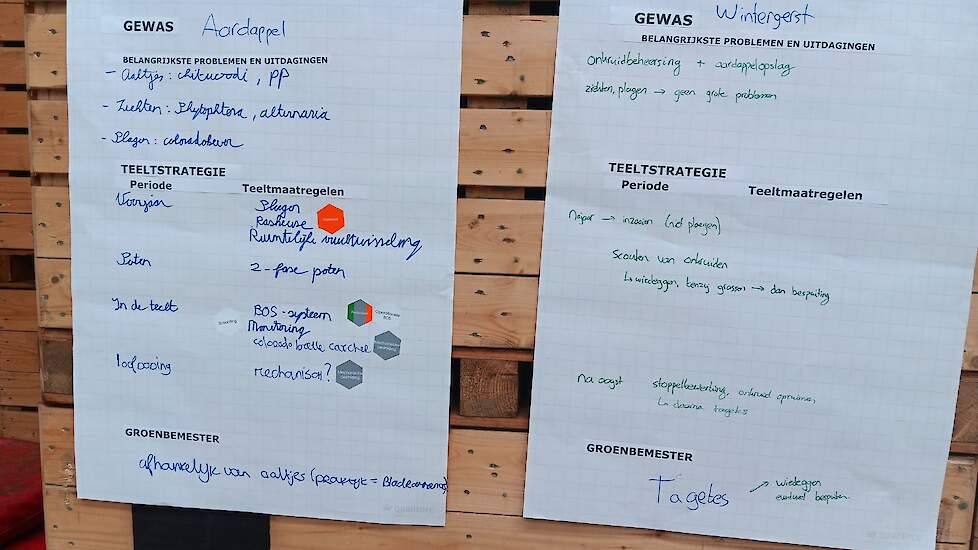 GEWAS Aardappel
BELANGRIJKSTE PROBLEMEN EN UITDAGINGEN
- Aaltjes: chitwoodi, pp
- Ziekten: Phytophtora, alternaria
- Plagen: coloradokever
TEELTSTRATEGIE
Periode Teeltmaatregelen
Voorjaar Ploegen
Raskeuze
Ruimtelijke vruchtwisseling
Poten 2-fase poten
In de teelt BOS-systeem
Monitoring
colorado beetle catcher
Loofdoding mechanisch?
GROENBEMESTER
afhankelijk van aaltjes (praktijk = Bladrammenas)
GEWAS Wintergerst
BELANGRIJKSTE PROBLEMEN EN UITDAGINGEN
Onkruidbeheersing + aardappelopslag
ziekten, plagen → geen grote problemen
TEELTSTRATEGIE
Periode Teeltmaatregelen
Najaar → inzaaien (niet ploegen)
Scouten van onkruiden
↳ wiedeggen, tenzij grassen → dan bespuiting
Na oogst stoppelbewerking, onkruid opruimen,
↳ daarna tagetes
GROENBEMESTER
Tagetes ↗ wiedeggen
eventueel bespuiten